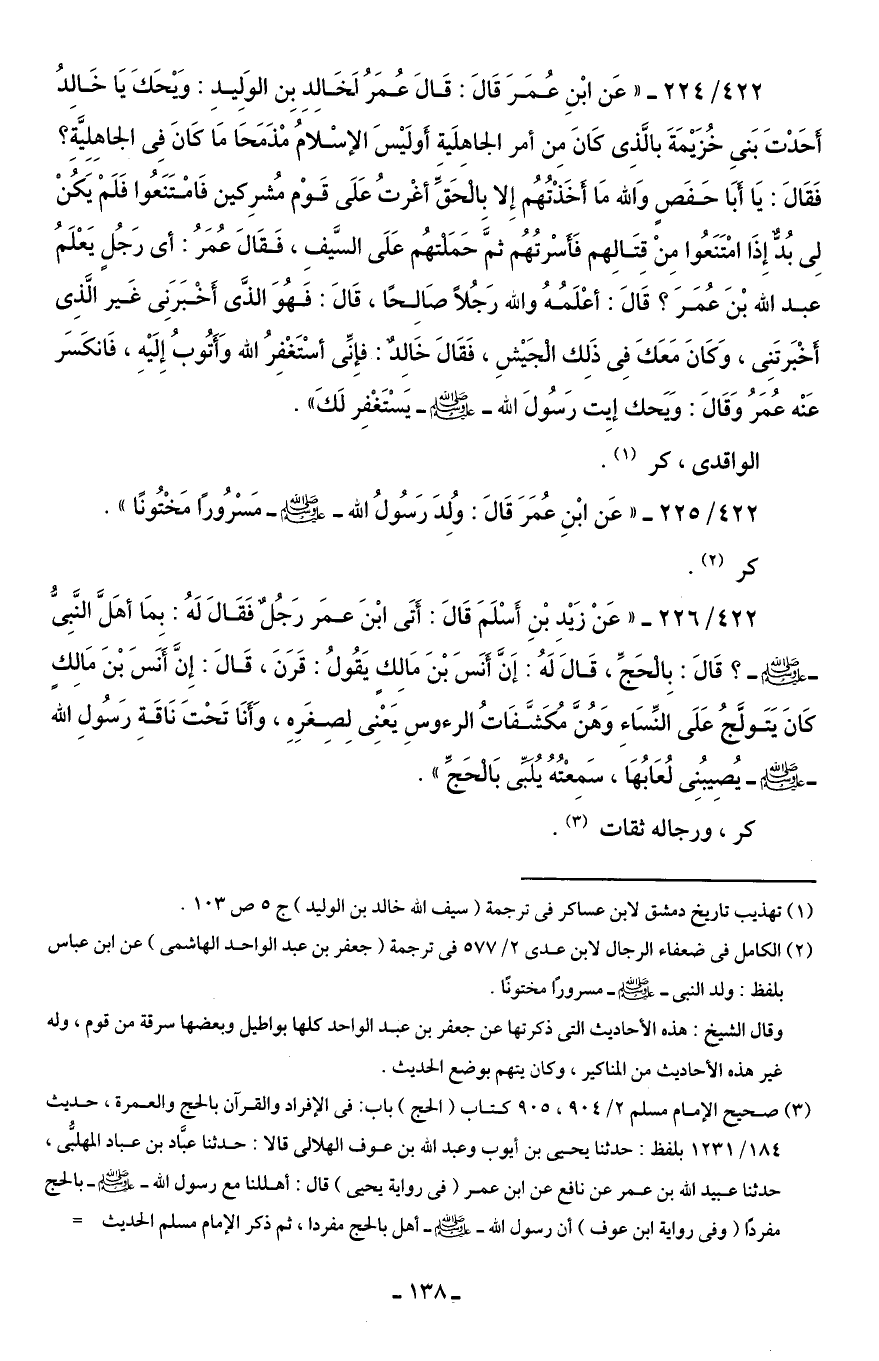 ٤٢٢/ ٢٢٤ ـ « عَن ابْنِ عُـمَـرَ قَالَ : قَـالَ عُـمَرُ لَخَـالِدِ بن الوَليـد : وَيْحَكَ يَا خَـالدُ
أَحَدْتَ بَنى خُزَيْمَةَ بالَّذِى كَانَ من أمر الجاهلَية أَولَيْسَ الإسْـلامُ مْذمَحَا مَا كَانَ فى الجاهِليَّة؟
فَقَالَ : يَا أَبَا حَـفَصٍ وَالله مَا أَخَذْتُهُم إلا بالْحَقِّ أغْرتُ عَلَى قَـوْم مُشركين فَامْـتَنَعُوا فَلَمْ يَكُنْ
لى بُدٌّ إذَا امْتَنَعُوا مِن قتَـالهم فَأسْرتُهُم ثمَّ حَمَلْتهُم عَلَى السَّيف ، فَـقَالَ عُمَرُ : أى رَجُلٍ يَعْلَمُ
عبـد الله بْنَ عُمَـرَ ؟ قَالَ : أعْلَمُـهُ والله رَجُلاً صَالـحًا ، قَالَ : فَـهُوَ الذَّى أَخْـبَرَنِى غَـير الَّذى
أخْبَرتَنِى ، وَكَانَ مَعَكَ فى ذَلِك الْجَيْش ، فَقَالَ خَالِدٌ : فإنِّى أسْتَغْفرُ الله وَأَتُوبُ إِلَيْهِ ، فَانكَسَر
عَنْه عُمَرُ وَقَالَ : وَيَحك إيت رَسُولَ الله ـ ﷺ ـ يَسْتَغْفِر لَكَ» .
الواقدى ، كر (١) .
٤٢٢/ ٢٢٥ ـ « عَن ابْنِ عُمَرَ قَالَ : وُلدَ رَسُولُ الله ـ ﷺ ـ مَسْرُورًا مَخْتُونًا » .
كر (٢) .
٤٢٢/ ٢٢٦ ـ « عَنْ زَيْد بْنِ أسْلَمَ قَالَ : أَتَى ابْنَ عـمَر رَجُلٌ فَقَـالَ لَهُ : بِمَا أهَلَّ النَّبىُّ
ـ ﷺ ـ ؟ قَالَ : بِالْحَجِّ ، قَـالَ لَهُ : إنَّ أَنَسَ بْنَ مَالك يَقُولُ : قَرَنَ ، قَـالَ : إنَّ أَنَسَ بْنَ مَالِك
كَانَ يَتَـولَّجُ عَلَى النِّسَاء وَهُنَّ مُكَشَّفَاتُ الرءوسِ يَعْنِى لِصـغَره ، وَأَنَا تَحْتَ نَاقَـة رَسُولِ الله
ـ ﷺ ـ يُصيبُنِى لُعَابُهَا ، سَمِعْتُهُ يُلَبِّى بَالْحَجِّ » .
كر ، ورجاله ثقات (٣) .
(١) تهذيب تاريخ دمشق لابن عساكر فى ترجمة ( سيف الله خالد بن الوليد ) ج ٥ ص ١٠٣ .
(٢) الكامل فى ضعفاء الرجال لابن عـدى ٢/ ٥٧٧ فى ترجمة ( جعفر بن عبد الواحـد الهاشمى ) عن ابن عباس
بلفظ : ولد النبى ـ ﷺ ـ مسرورًا مختونًا .
وقال الشيخ : هذه الأحاديث التى ذكرتها عن جعفر بن عبـد الواحد كلها بواطيل وبعضها سرقة من قوم ، وله
غير هذه الأحاديث من المناكير ، وكان يتهم بوضع الحديث .
(٣) صـحيح الإمـام مسلم ٢/ ٩٠٤ ، ٩٠٥ كـتـاب ( الحج ) باب: فى الإفراد والقـرآن بالحج والعـمرة ، حـديث
١٨٤/ ١٢٣١ بلفظ : حدثنا يحيـى بن أيوب وعبد الله بن عـوف الهلالى قالا : حـدثنا عبَّاد بن عباد المهلبُّى ،
حدثنا عـبيد الله بن عـمر عن نافع عن ابن عمـر ( فى رواية يحيى ) قال : أهـللنا مع رسول الله ـ ﷺ ـ بالحج
مفردًا ( وفى رواية ابن عوف ) أن رسول الله ـ ﷺ ـ أهل بالحج مفردا ، ثم ذكر الإمام مسلم الحديث =
ـ ١٣٨ ـ